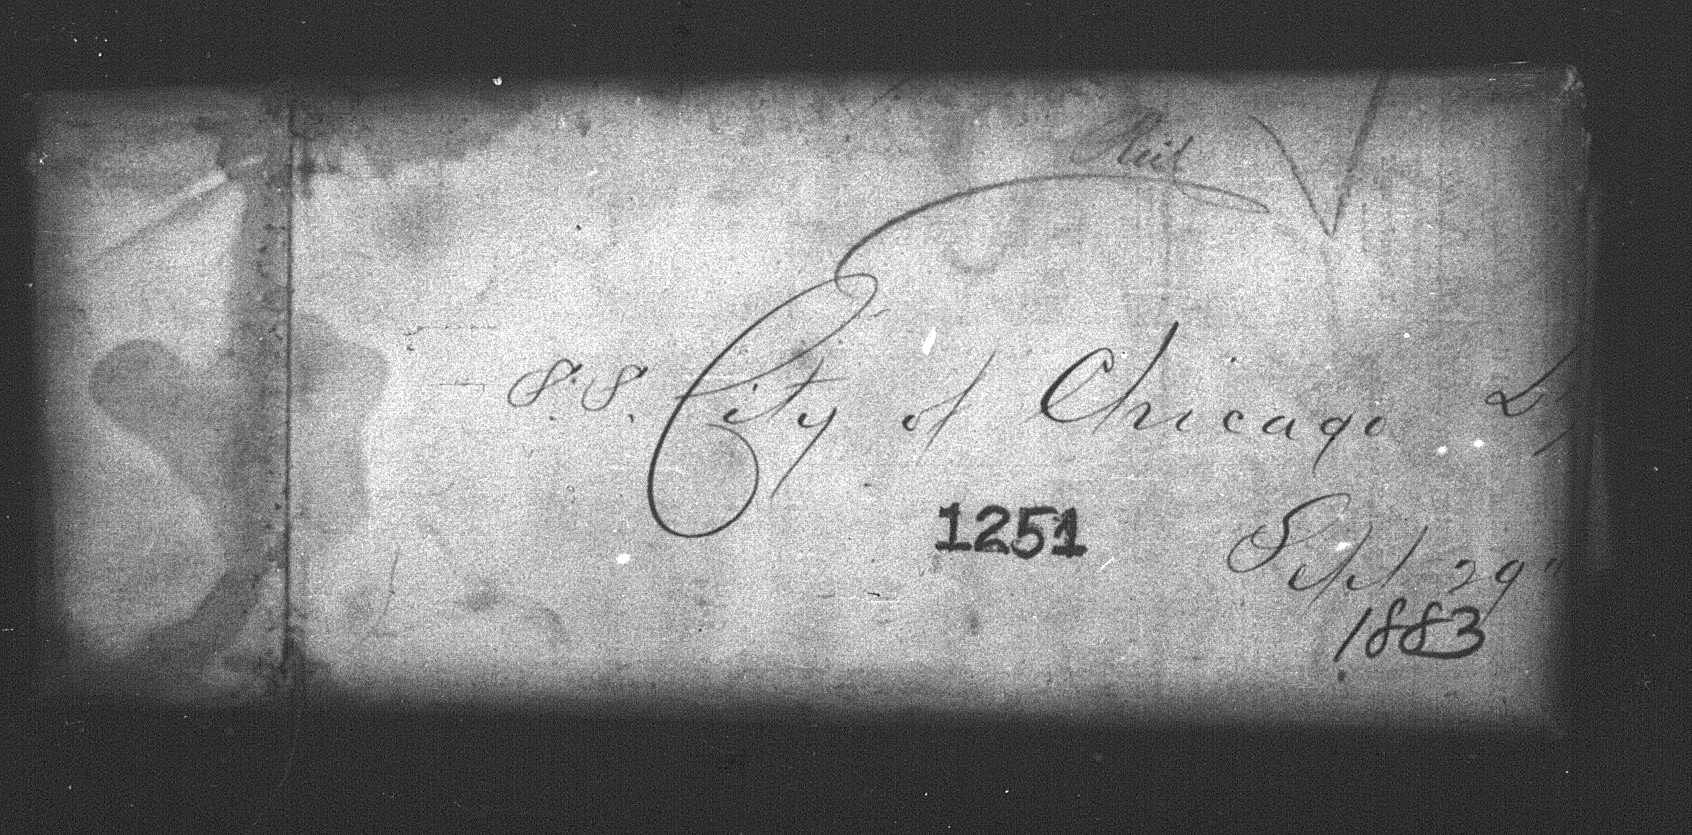 S.S. City of Chicago L
1251
Sept 29"
1883